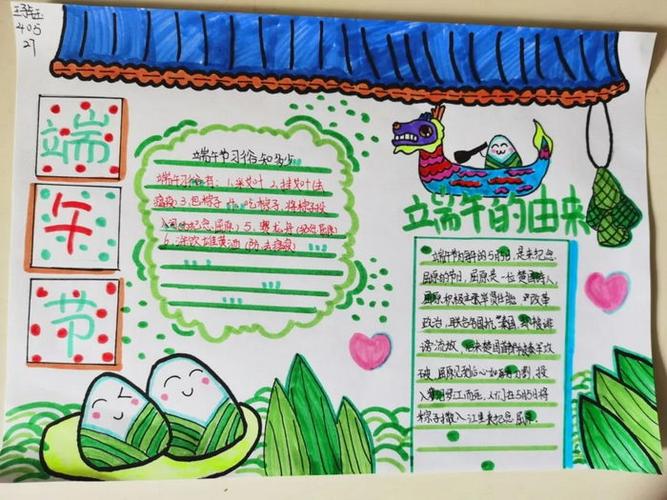 405
27
端
午
节
端午节习俗知多少
端午习俗有：1.采艾叶 2.挂艾叶(去
瘟疫) 3.包粽子 4.吃粽子,将粽子投
入河 纪念屈原) 5.赛龙舟(纪念屈原)
6.洒饮雄黄酒(防去瘟疫)
端午的由来
端午节为每年的5月5日,是来纪念
屈原的节日,屈原是一位楚国诗人,
屈原积极主张举贤任能,改革
政治,联合各国抗秦国,却被诽
谤流放,后来楚国首都被秦军攻
破,屈原见到后心如刀割,投
入汨罗江而死,人们在5月5日将
粽子撒入江里来纪念屈原。